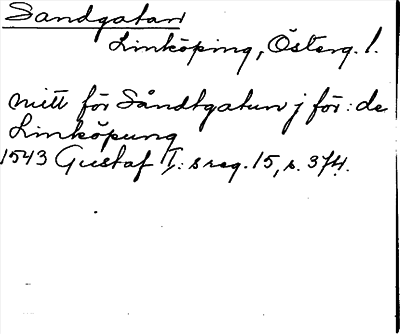 Sandgatan
Linköping, Österg. l.
mitt för Såndtgatun j för: de
Linköpung
1543 Gustaf I: s reg. 15, s. 374.